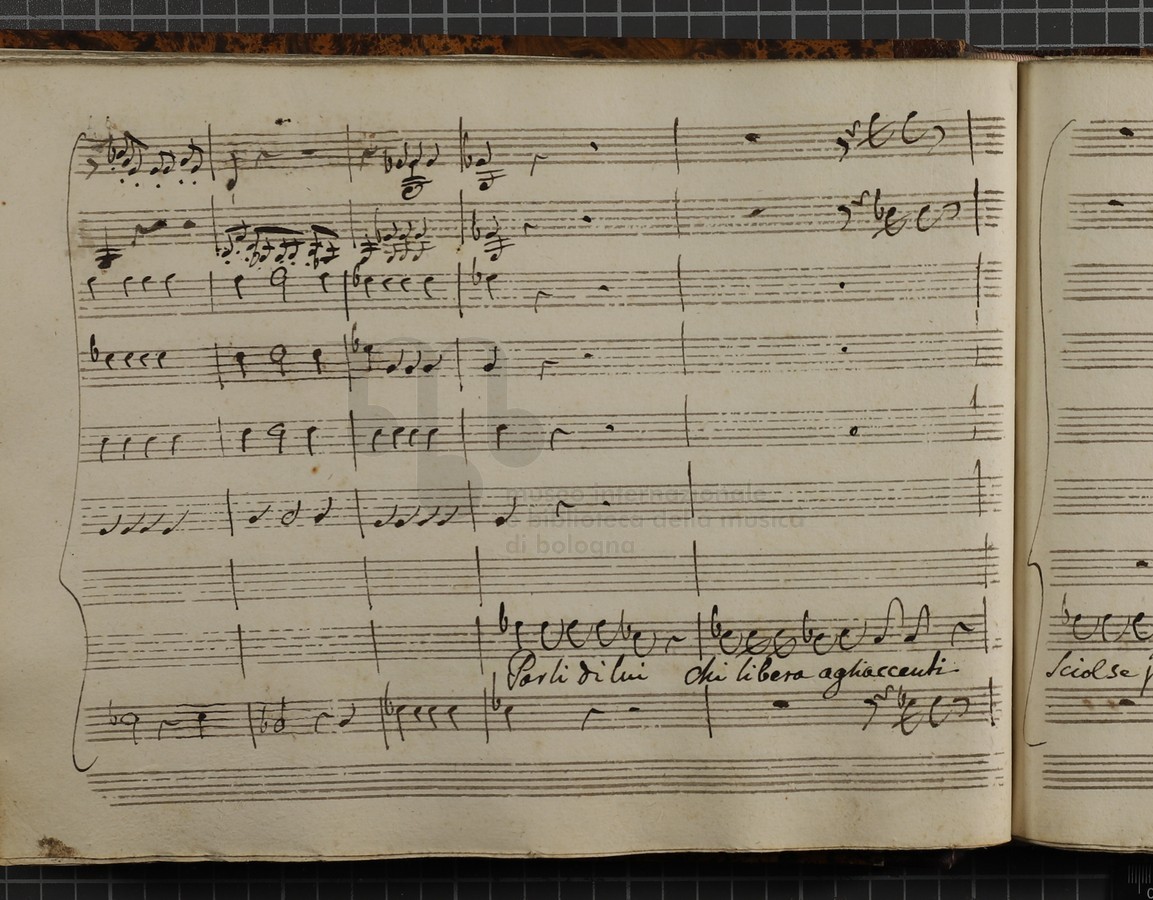 museo internazionale
e biblioteca della musica
di bologna
Parli di lui chi libera agli accenti
Sciolse